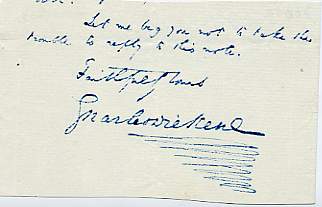 Let me beg you not to take the
trouble to reply to this note.
Faithfully Yours
Charles Dickens